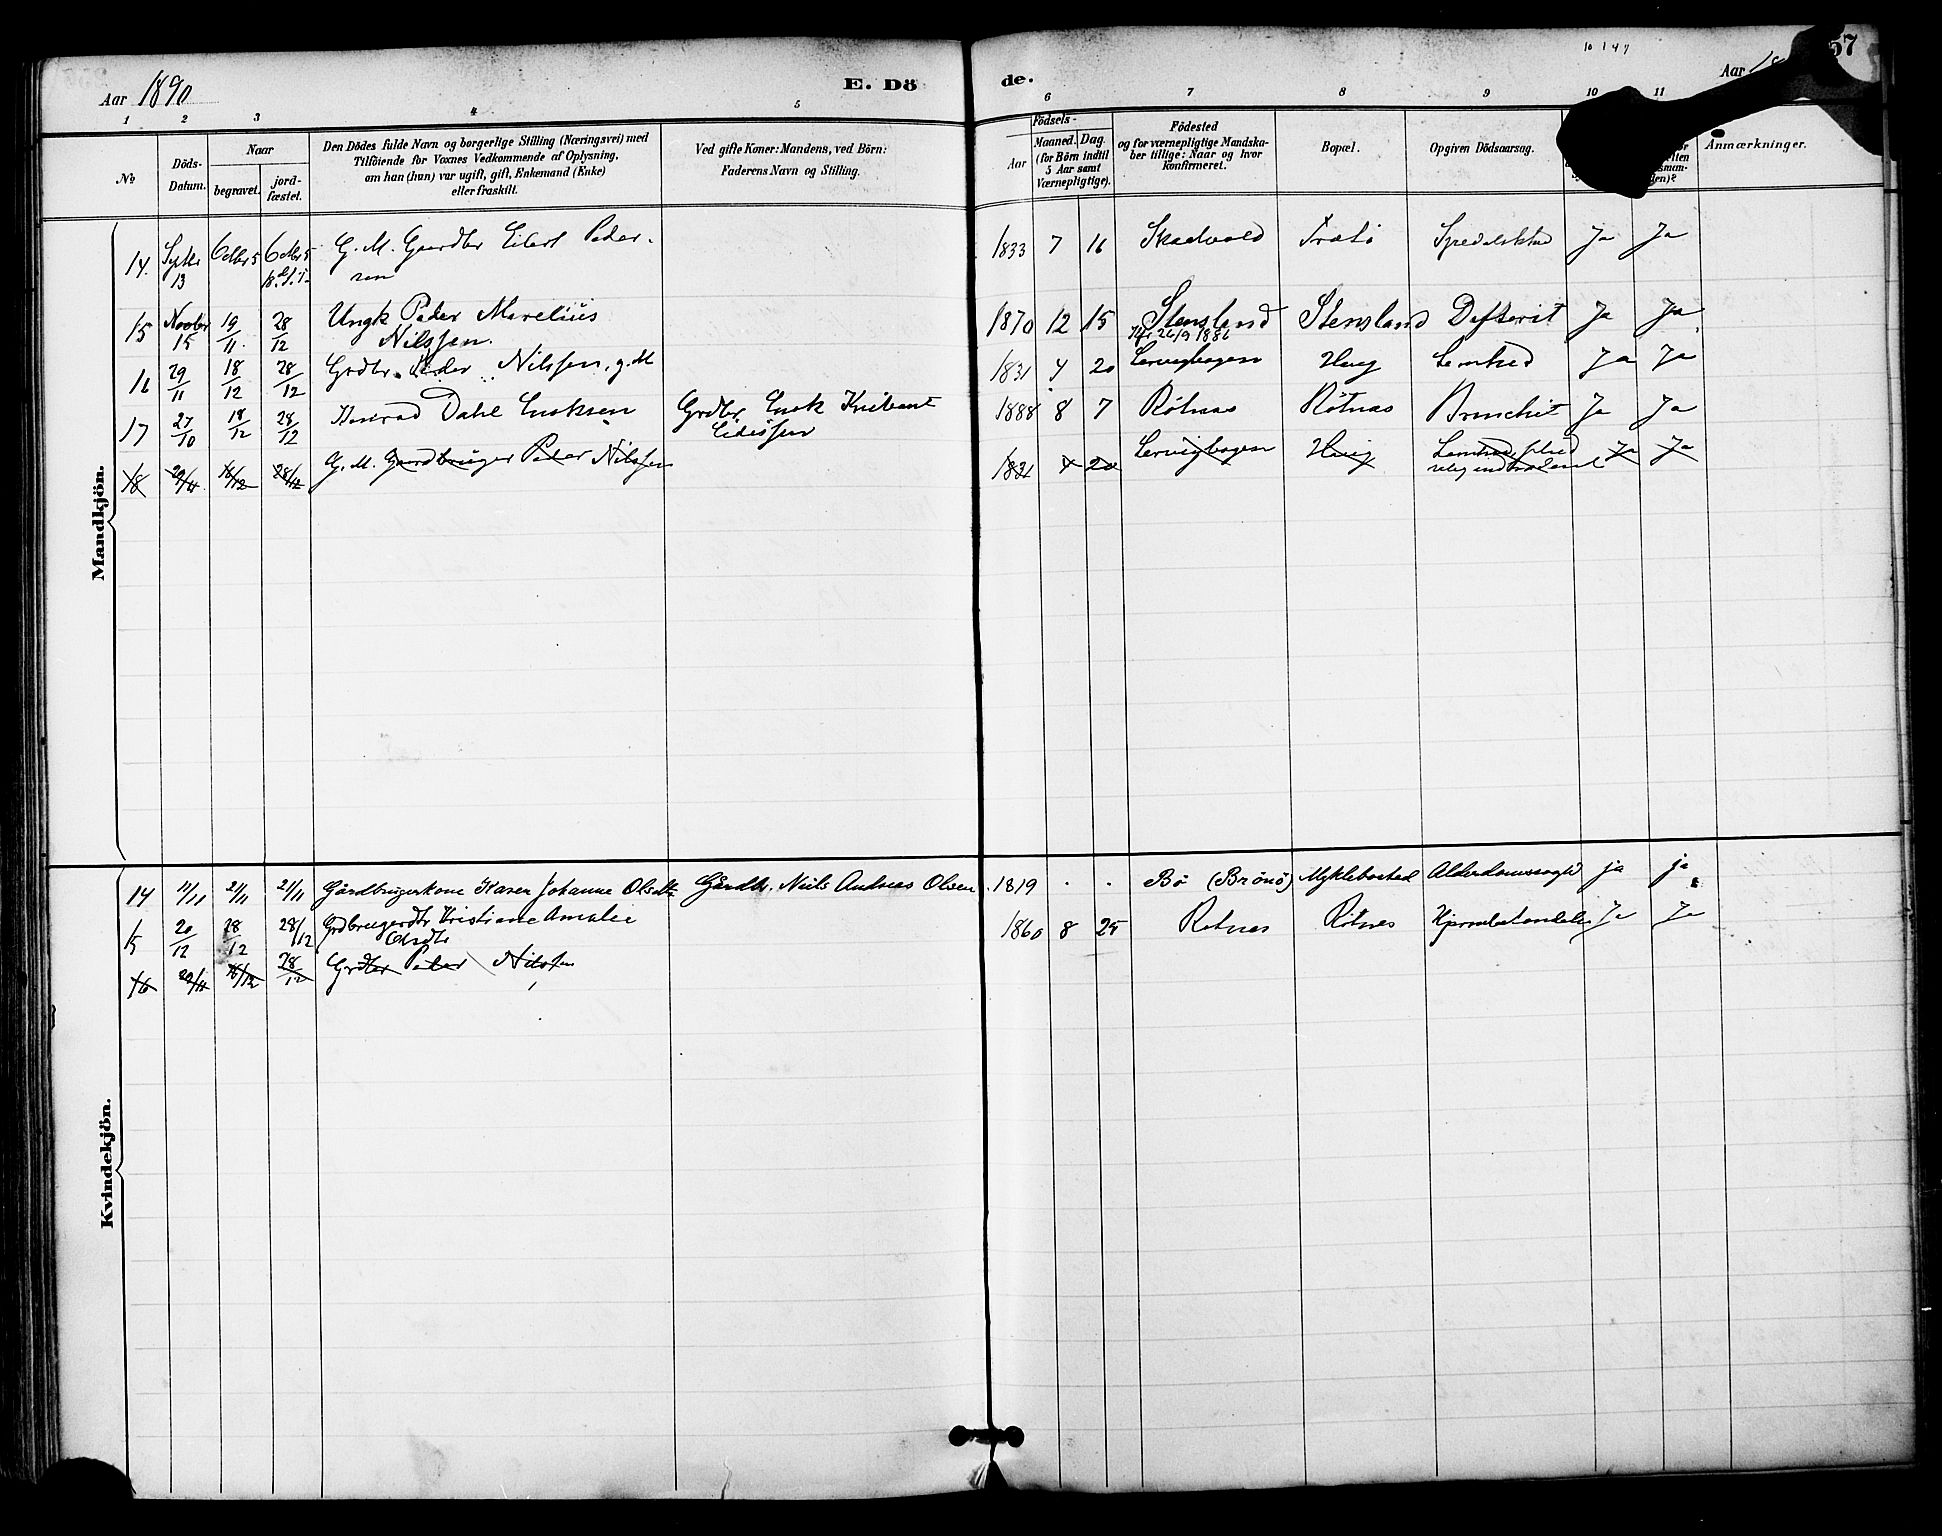 10 1 4 7
57
Aar 1890
E. Dö
de.
Aar 18
1 2 3 4 5 6 7 8 9 10 11
No
Döds-Datum.
Naar
begravet.
jord-fæstet.
Den Dödes fulde Navn og borgerlige Stilling (Næringsvei) med
Tilföiende for Voxnes Vedkommende af Oplysning,
om han (hun) var ugift, gift, Enkemand (Enke)
eller fraskilt.
Ved gifte Koner: Mandens, ved Börn:
Faderens Navn og Stilling.
Födsels-
Aar
Maaned. Dag.
(for Börn indtil
5 Aar samt
Værnepligtige).
Födested
og for værnepligtige Mandska-
ber tillige: Naar og hvor
konfirmeret.
Bopæl.
Opgiven Dödsaarsag.
Anmærkninger.
Mandkjön.
14. Septbr 13 Octbr 5 Octbr 5 G. M. Gaardbr Eilert Peder- 1833 7 16 Skadvold Spedalskhed Ja Ja
sen
15 Novbr 15 19/11 28/12 Ungk Peder Marelius 1870 12 15 Stensland Stensland Difterit Ja Ja
Nilssen. 26/9 1886
16 29/11 18/12 28/12 Grdbr. Peder Nilssen, g. M 1831 4 20 Lervigbogen Ja Ja
17 27/10 18/12 28/12 Konrad Dahl Enoksen Grdbr Enok 1888 8 7 Rötnæs Rötnæs Bronchit Ja Ja
18 29/11 18/12 28/12 G. M. Gaardbruger Peder Nilssen 1831 4 20 Lervigbogen Ja Ja
Kvindekjön.
14 11/11 21/11 21/11 Gårdbrugerkone Karen Johanne Olsdtr Gårdbr. Niels Andreas Olsen 1819 Bö (Brönö) Myklebostad Alderdomssvaghd ja ja
15 20/12 28/12 28/12 Grdbrugerdtr Kristiane Amalie 1860 8 25 Rötnes Rötnes Ja Ja
Olsdtr
16 29/11 18/12 28/12 Grdbr Peder Nilssen